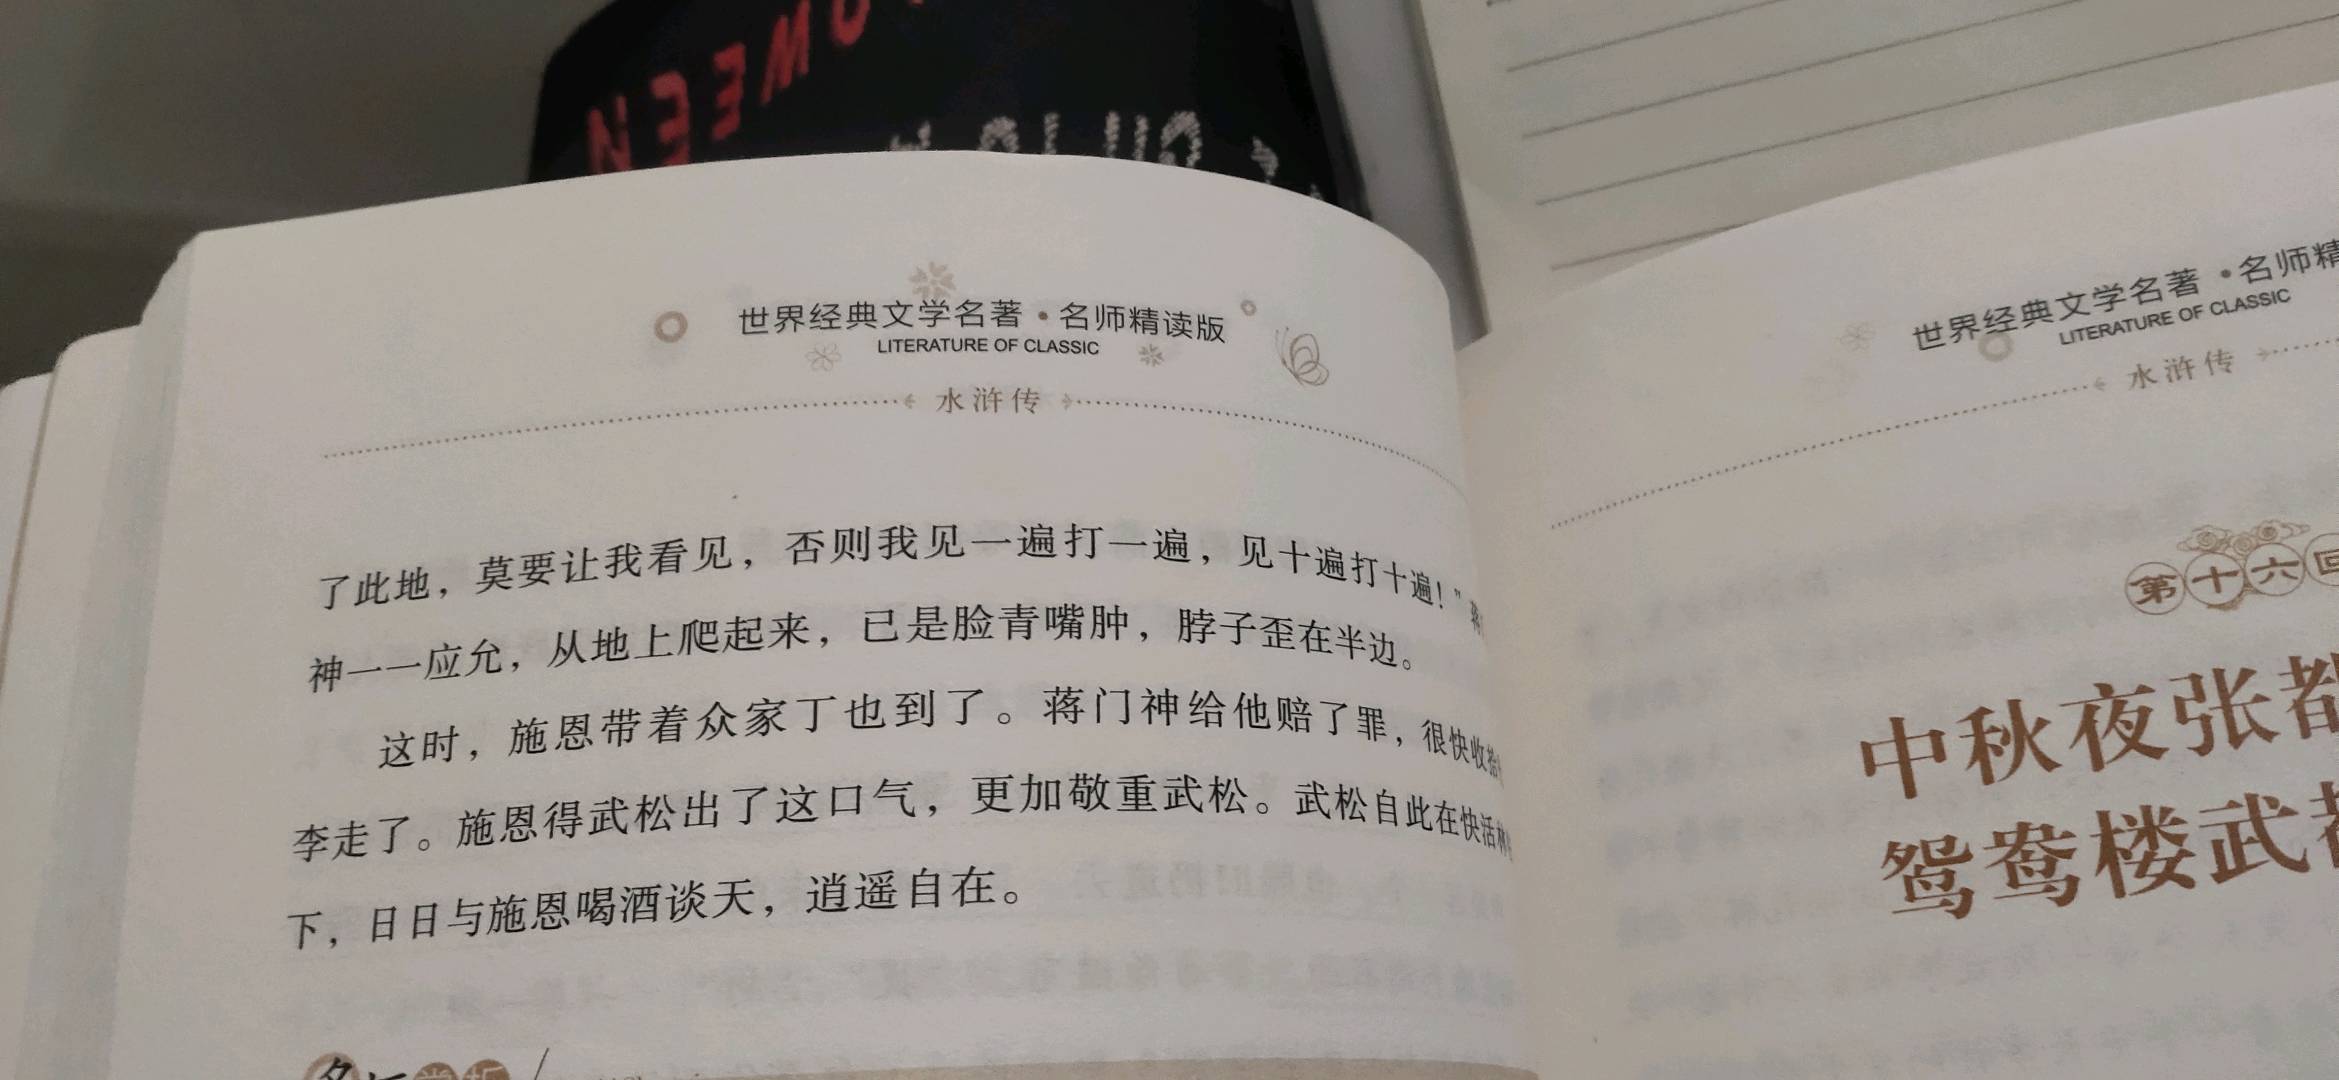 OWEEN
世界经典文学名著·名师精读版
LITERATURE OF CLASSIC
水浒传
了此地，莫要让我看见，否则我见一遍打一遍，见十遍打十遍！”蒋
神一一应允，从地上爬起来，已是脸青嘴肿，脖子歪在半边。
这时，施恩带着众家丁也到了。蒋门神给他赔了罪，很快收拾
李走了。施恩得武松出了这口气，更加敬重武松。武松自此在快活林
下，日日与施恩喝酒谈天，逍遥自在。
世界经典文学名著·名师精
LITERATURE OF CLASSIC
水浒传
第十六回
中秋夜张都
鸳鸯楼武都